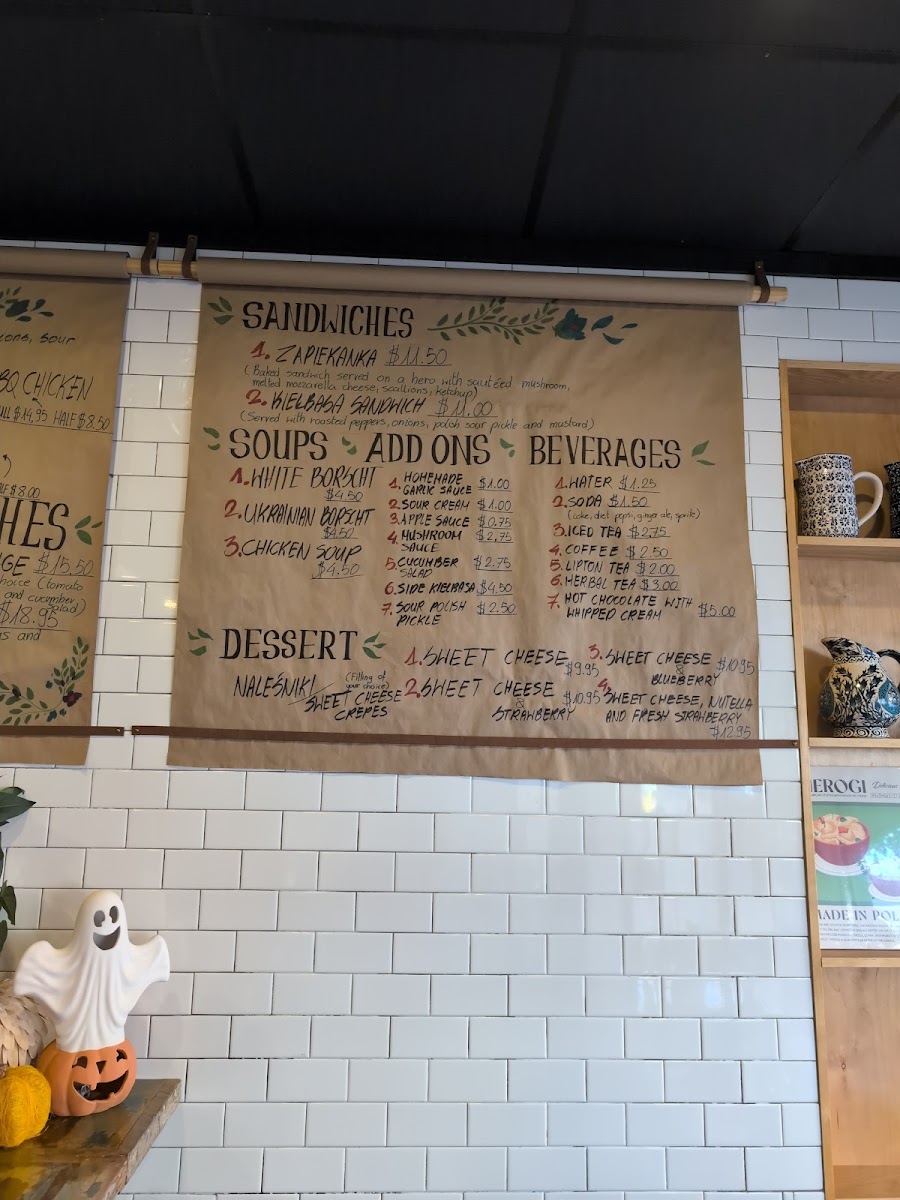 SANDWICHES
1. ZAPIEKANKA $11.50
(Baked sandwich served on a hero with sautéed mushroom,
melted mozzarella cheese, scallions, ketchup)
2. KIELBASA SANDWICH $11.00
(Served with roasted peppers, onions, polish sour pickle and mustard)
SOUPS
1. WHITE BORSCHT
$4.50
2. UKRAINIAN BORSCHT
$4.50
3. CHICKEN SOUP
$4.50
ADD ONS
1. HOMEMADE
GARLIC SAUCE $1.00
2. SOUR CREAM $1.00
3. APPLE SAUCE $0.75
4. MUSHROOM $2.75
SAUCE
5. CUCUMBER $2.75
SALAD
6. SIDE KIELBASA $4.50
7. SOUR POLISH $2.50
PICKLE
BEVERAGES
1. WATER $1.25
2. SODA $1.50
(coke, diet pepsi, ginger ale, sprite)
3. ICED TEA $2.75
4. COFFEE $2.50
5. LIPTON TEA $2.00
6. HERBAL TEA $3.00
7. HOT CHOCOLATE WITH
WHIPPED CREAM $5.00
DESSERT
NALEŚNIKI (Filling of
your choice)
SWEET CHEESE
CREPES
1. SWEET CHEESE
$9.95
2. SWEET CHEESE
& $10.95
STRAWBERRY
3. SWEET CHEESE $10.95
&
BLUEBERRY
4. SWEET CHEESE, NUTELLA
AND FRESH STRAWBERRY
$12.95
sour
BQ CHICKEN
$14,95 HALF $8.50
$8.00
HES
GE $15.50
choice (tomato
and cucumber
salad)
$18.95
and
IEROGI
MADE IN POL